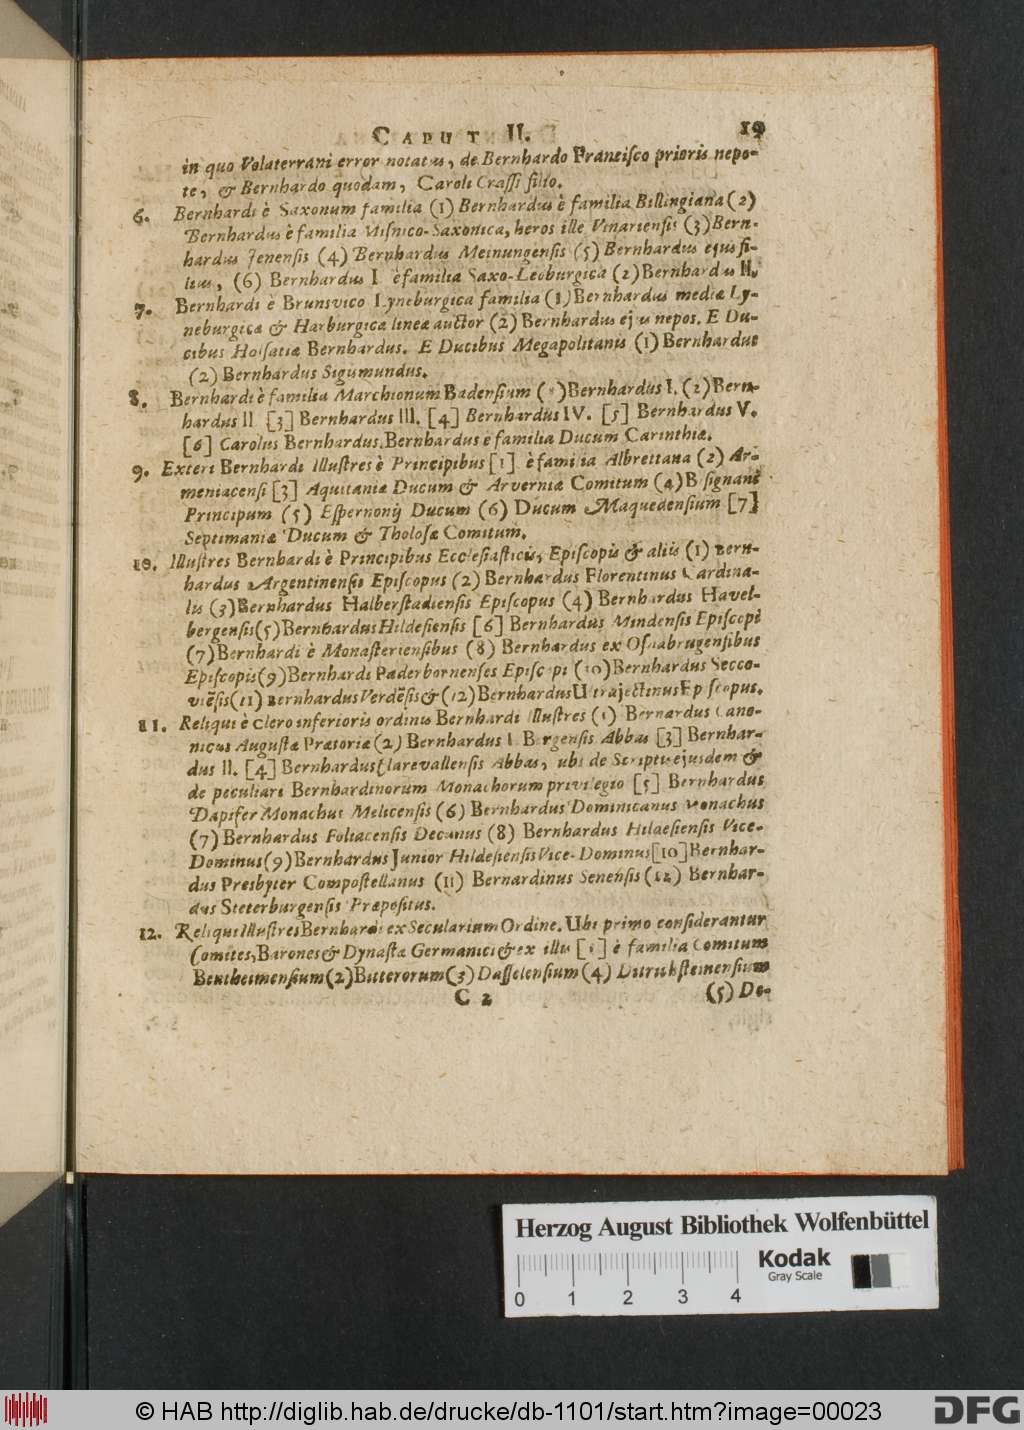 CAPUT II. 19
in quo Volaterrani error notatus, de Bernhardo Francisco prioris nepo-
te, & Bernhardo quodam, Caroli Crassi filio.
6. Bernhardi è Saxonum familia (1) Bernhardus è familia Billingiana (2)
Bernhardus è familia Misnico-Saxonica, heros ille Vinariensis (3) Bern-
hardus Jenensis (4) Bernhardus Meinungensis (5) Bernhardus ejus fi-
lius, (6) Bernhardus I. è familia Saxo-Leoburgica (2) Bernhardus II.
7. Bernhardi è Brunsvico Lyneburgica familia (1) Bernhardus mediæ Ly-
neburgicæ & Harburgicæ lineæ auctor (2) Bernhardus ejus nepos. E Du-
cibus Holsatiæ Bernhardus. E Ducibus Megapolitanis (1) Bernhardus
(2) Bernhardus Sigismundus.
8. Bernhardi è familia Marchionum Badensium (1) Bernhardus I. (2) Bern-
hardus II [3] Bernhardus III. [4] Bernhardus IV. [5] Bernhardus V.
[6] Carolus Bernhardus. Bernhardus è familia Ducum Carinthiæ.
9. Exteri Bernhardi Illustres è Principibus [1] è familia Albrettana (2) Ar-
meniacensi [3] Aquitaniæ Ducum & Arverniæ Comitum (4) Bisignani
Principum (5) Espernonij Ducum (6) Ducum Maquedensium [7]
Septimaniæ Ducum & Tholosæ Comitum.
10. Illustres Bernhardi è Principibus Ecclesiasticis, Episcopis & aliis (1) Bern-
hardus Argentinensis Episcopus (2) Bernhardus Florentinus Cardina-
lis (3) Bernhardus Halberstadiensis Episcopus (4) Bernhardus Havel-
bergensis (5) Bernhardus Hildesiensis [6] Bernhardus Mindensis Episcopi
(7) Bernhardi è Monasteriensibus (8) Bernhardus ex Osnabrugensibus
Episcopis (9) Bernhardi Paderbornenses Episcopi (10) Bernhardus Secco-
viẽsis (11) Bernhardus Verdẽsis & (12) Bernhardus Ultrajectinus Episcopus.
11. Reliqui è clero inferioris ordinis Bernhardi Illustres (1) Bernardus Cano-
nicus Augustæ Prætoriæ (2) Bernhardus I. Bergensis Abbas [3] Bernhar-
dus II. [4] Bernhardus Clarevallensis Abbas, ubi de Scriptis ejusdem &
de peculiari Bernhardinorum Monachorum privilegio [5] Bernhardus
Dapifer Monachus Melicensis (6) Bernhardus Dominicanus Monachus
(7) Bernhardus Foliacensis Decanus (8) Bernhardus Hildesiensis Vice-
Dominus (9) Bernhardus Junior Hildesiensis Vice-Dominus [10] Bernhar-
dus Presbyter Compostellanus (11) Bernardinus Senensis (12) Bernhar-
dus Steterburgensis Præpositus.
12. Reliqui Illustres Bernhardi ex Secularium Ordine. Ubi primo considerantur
Comites, Barones & Dynastæ Germanici & ex illis [1] è familia Comitum
Bentheimensium (2) Bitterorum (3) Dasselensium (4) Ditrichsteinensium
C 2 (5) De-
Herzog August Bibliothek Wolfenbüttel
Kodak
Gray Scale
0 1 2 3 4
© HAB http://diglib.hab.de/drucke/db-1101/start.htm?image=00023
DFG